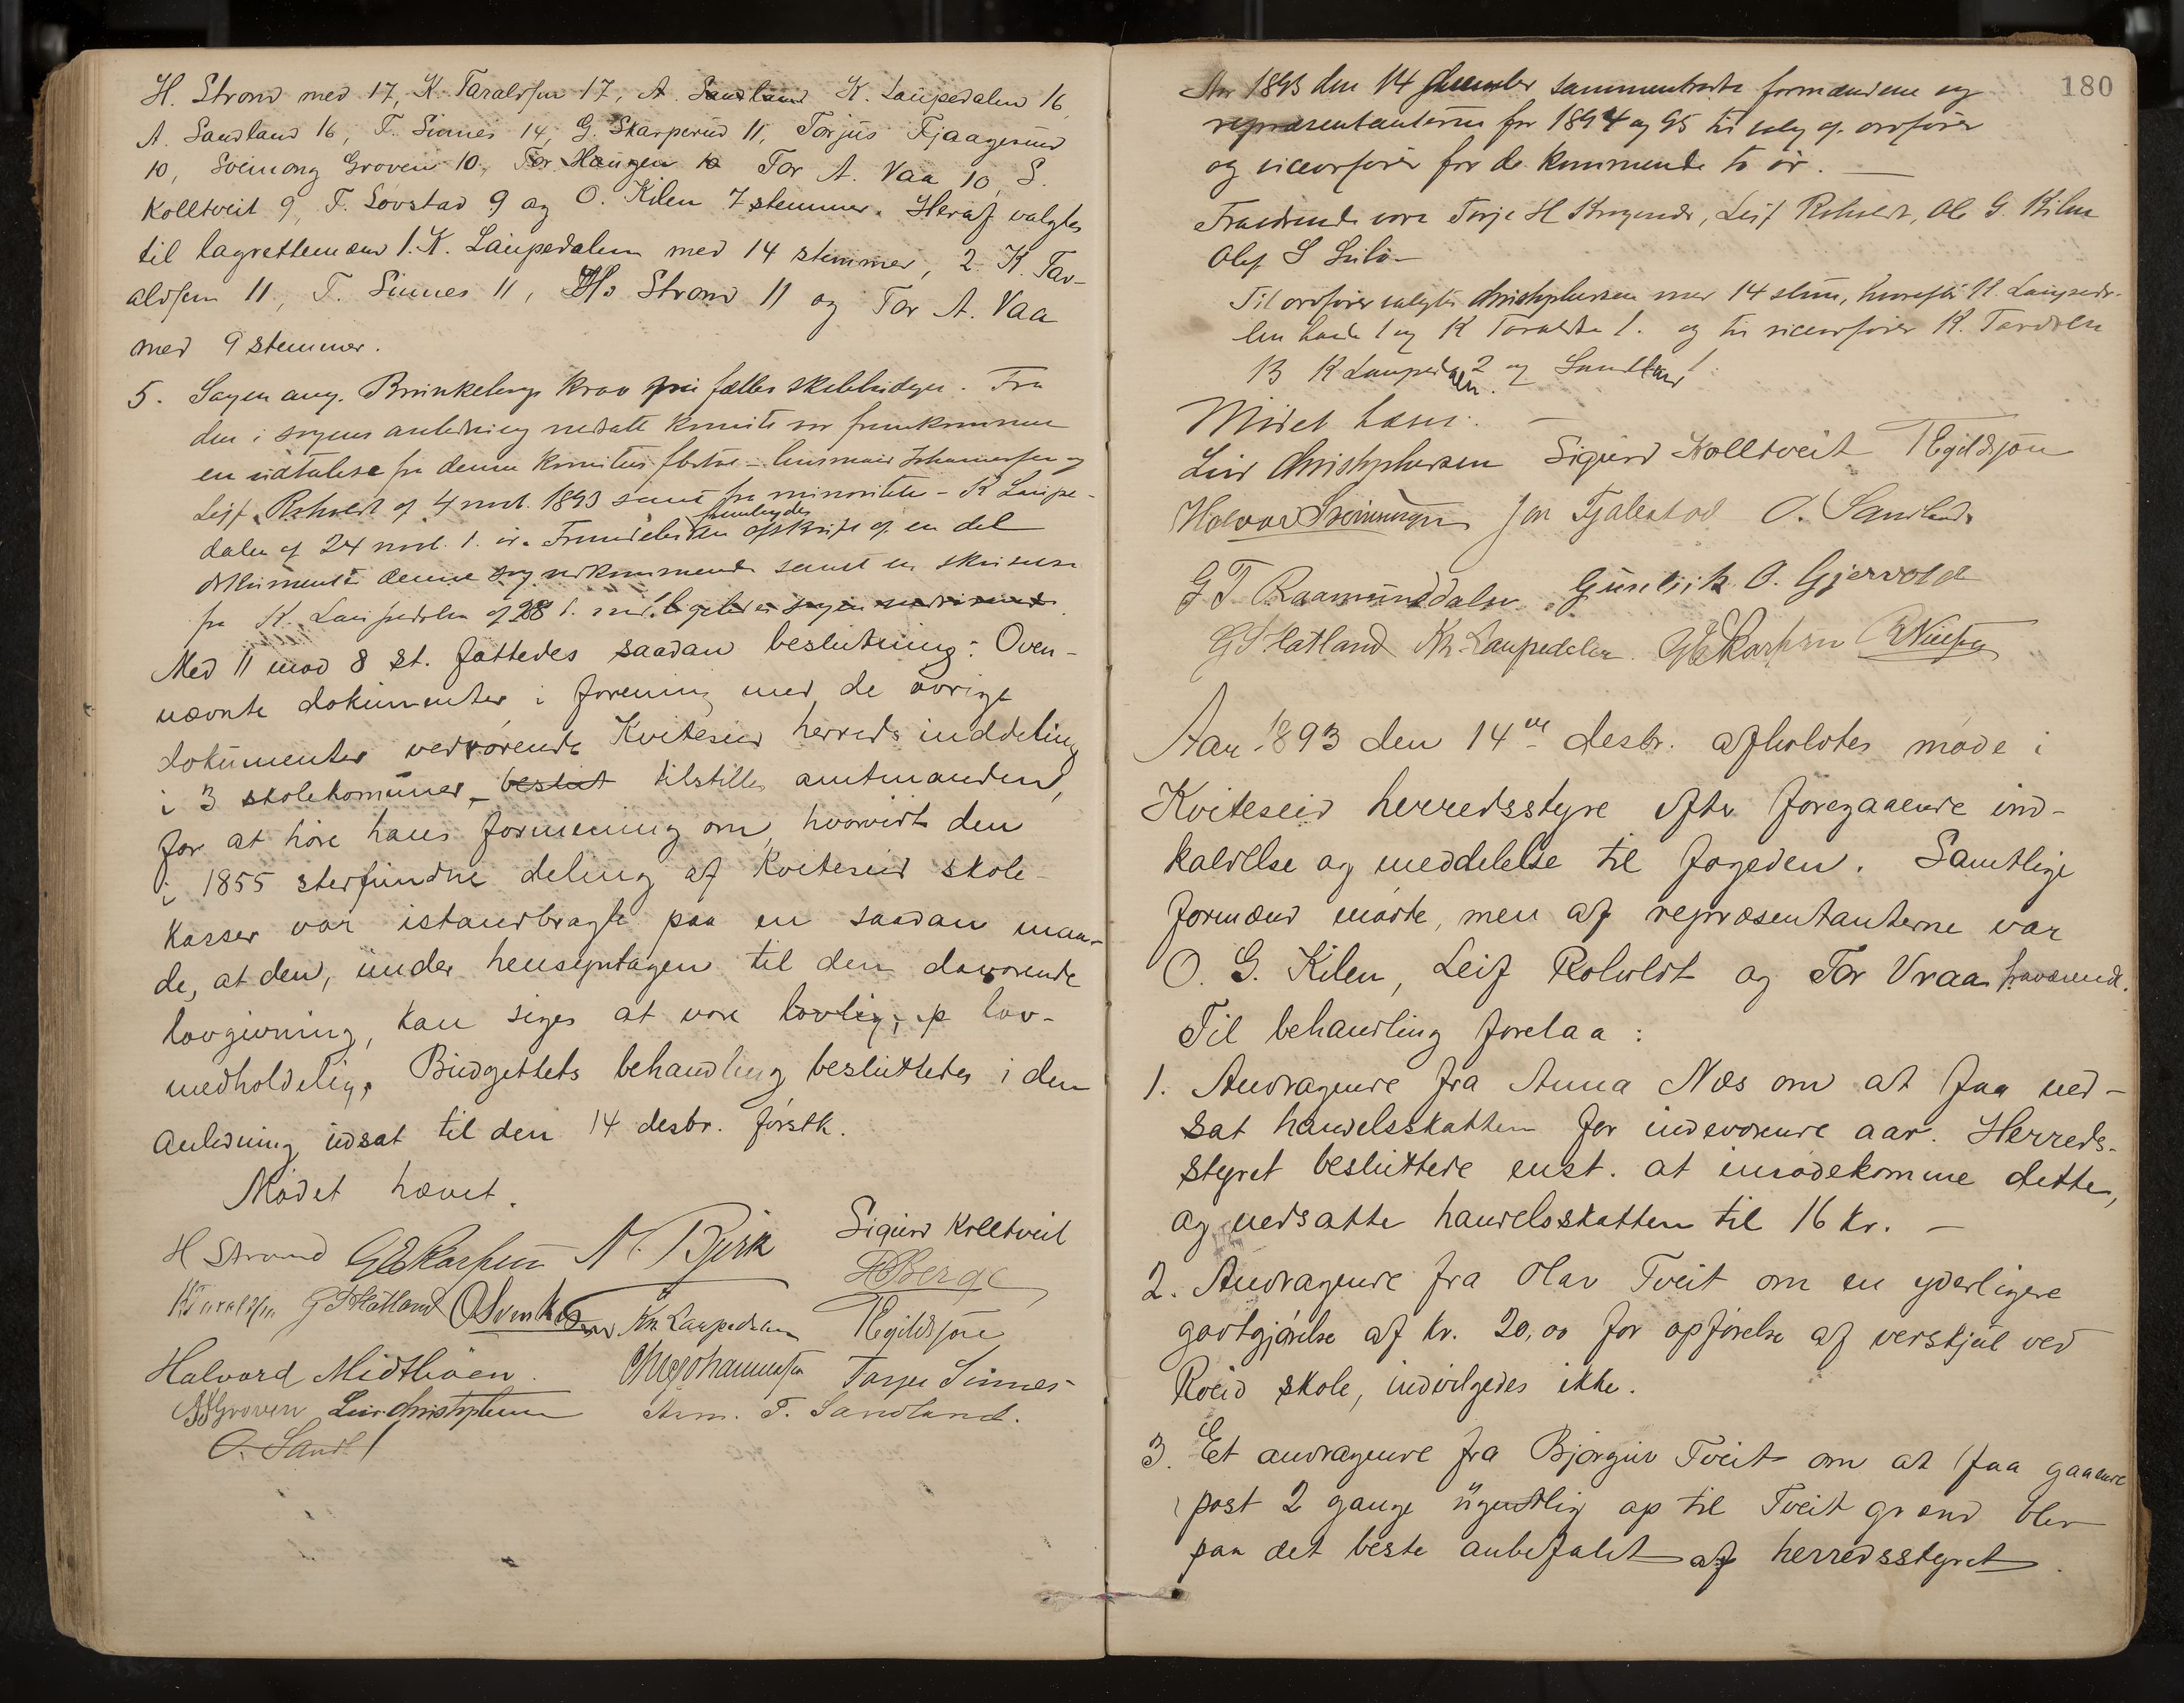 H. Strand med 17, K. Taraldsen 17, A. Sandland K. Laupedalen 16,
A. Sandland 16, T. Sinnes 14, G. Skarperud 11, Torjus Fjaagesund
10, Sveinong Groven 10, Tor Haugen 10 Tor A. Vaa 10, S.
Kolltveit 9, T. Lovstad 9 og O. Kilen 7 stemmer. Heraf valgtes
til lagrettemænd 1. K. Laupedalen med 14 stemmer, 2. K. Tar-
aldsen 11, T. Sinnes 11, H. Strand 11 og Tor A. Vaa
med 9 stemmer.
5. Sagen ang. Brunkebergs krav paa fælles skolebidrag. Fra
den i sagens anledning nedsatte komite var fremkommen
en udtalelse fra denne komites
Leif Roholdt af 4 novb. 1893 samt fra minoriteten - K Laupe-
dalen af 24 novb. d. år. fremlagdes afskrift af en del
dokumenter denne sag vedkommende samt en skrivelse
fra K. Laupedalen af 28 d. md.
Med 11 mod 8 st. fattedes saadan beslutning: Oven-
nævnte dokumenter i forening med de øvrige
dokumenter vedrørende Kviteseid herreds inddeling
i 3 skolekommuner, beslut tilstilles amtmanden,
for at høre hans formening om, hvorvidt den
i 1855 stedfundne deling af Kviteseid skole-
kasser var istandbragte paa en saadan maa-
de, at den, under hensyntagen til den daværende
lovgivning, kan siges at være lovlig, p lov-
medholdelig. Budgettets behandling besluttedes i den
anledning udsat til den 14 desbr. førstk.
Mødet hævet.
H Strand GESkarperud N. Bjrk Sigurd Kolltveit
HBerge
KTaraldsen G S Hatland OSvenkesen Kn. Laupedalen TEgildsjore
Halvord Midtbøen. Chr Johannesen Tarjei Sinnes
SSGroven Leir Christophersen Aam. T. Sandland.
O. Sandl
180
Aar 1893 den 14 december sammentraadte formændene og
repræsentanterne for 1894 og 95 til valg af ordfører
og viceordfører for de kommende to år. —
Fraværende vare Torje H , Leif Roholdt, Ole G. Kilen
Olaf S
Til ordfører valgtes Christophersen med 14 stem, hvorefter K. Laupeda-
len havde 1 og K Taraldsen 1. og til viceordfører K. Taraldsen
13 K Laupedalen 2 og Sandland 1.
Mødet hævet. —
Leir Christophersen Sigurd Kolltveit TEgildsjore
Halvor Sveinungsen Jon Tjalestad O. Sandland
G T Raamunddalen. Gunleik O. Gjervold
G S Hatland Kn. Laupedalen. GESkarperud
Aar 1893 den 14de desbr. afholdtes møde i
Kviteseid herredsstyre efter foregaaende ind-
kaldelse og meddelelse til fogeden. Samtlige
formænd mødte, men af repræsentanterne var
O. G. Kilen, Leif Roholdt og Tor Vraa fraværende.
Til behandling forelaa:
1. Andragende fra Anna Næs om at faa ned-
sat handelsskatten for indeværende aar. Herreds-
styret besluttede enst. at imødekomme dette,
og nedsatte handelsskatten til 16 kr. —
2. Andragende fra Olav Tveit om en yderligere
godtgjørelse af kr. 20,00 for opførelse af vedskjul ved
Roeid skole, indvilgedes ikke.
3. Et andragende fra Bjørguv Tveit om at faa gaaende
post 2 gange ugentlig op til Tveit grend blev
paa det beste anbefalet af herredsstyret.